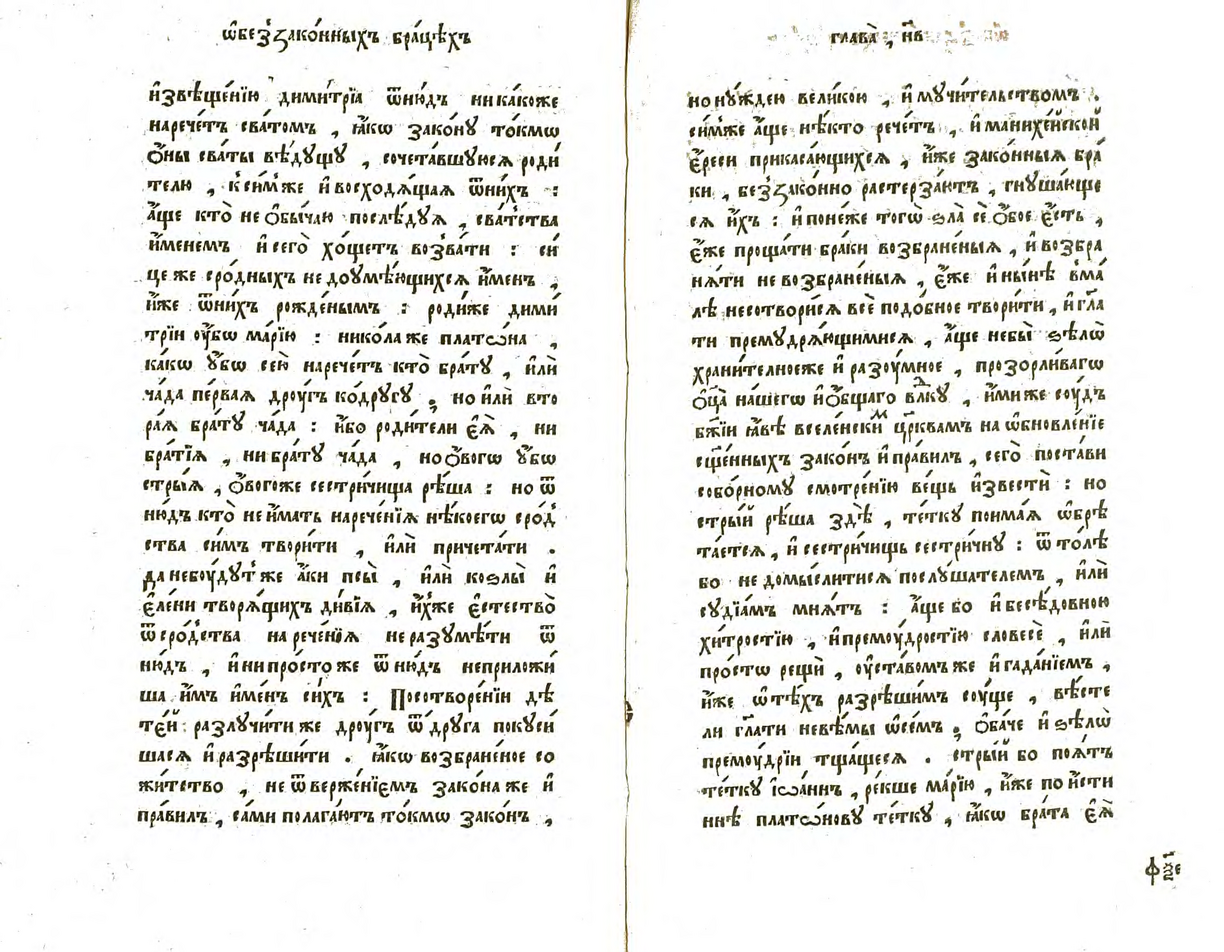 ѡ҆без̾зако́нныхъ бра́цѣхъ
и҆звѣще́нїю димит́рїа ѿню́дъ ника́коже
нарече́тъ сва́томъ , ꙗ҆́кѡ зако́нꙋ то́кмѡ
ѻ҆́ны сва́ты вѣ́дꙋщꙋ , сочета́вшꙋюсѧ роди́
телю , к̾си́мже и҆восходѧ́щаѧ ѿни́хъ :
а҆́ще кто̀ не ѻ҆бы́чаю послѣ́дꙋѧ , сва́тства
и҆́менемъ и҆сего̀ хо́щетъ возва́ти : си́
це же сро́дныхъ недоꙋмѣ́ющихсѧ и҆ме́нъ ,
и҆́же ѿни́хъ рожде́нымъ : роди́же дими́
трїи ᲂу҆́бѡ ма́рїю : нико́ла же плато́на ,
ка́кѡ ᲂу҆́бѡ сею̀ нарече́тъ кто̀ бра́тꙋ , и҆лѝ
ча́да пе́рваѧ дрꙋ́гъ ко́дрꙋгꙋ , но и҆лѝ вто
ра́ѧ бра́тꙋ ча́да : и҆́бо роди́тели є҆ѧ̀ , ни
бра́тїѧ , ни бра́тꙋ ча́да , но ѻ҆́вогѡ ᲂу҆́бѡ
стры́ѧ , ѻ҆́вогоже сестри́чища рѣ́ша : но ѿ
ню́дъ кто̀ не и҆́мать нарече́нїѧ нѣ́коегѡ сро́д
ства си́мъ твори́ти , и҆лѝ причета́ти .
да небꙋ́дꙋт̾ же а҆́ки псы̀ , и҆лѝ козлы̀ и҆
є҆ле́ни творѧ́щихъ ди́вїѧ , и҆́хже є҆стество̀
ѿ сро́дства нарече́нїѧ не разꙋмѣ́ти ѿ
ню́дъ , и҆ ни про́сто же ѿню́дъ неприложи́
ша и҆̀мъ и҆ме́нъ си́хъ : Посотворе́нїи дѣ
те́й разлꙋчи́ти же дрꙋ́гъ ѿ дрꙋ́га покꙋси́
шасѧ и҆ разрѣши́ти . ꙗ҆́кѡ возбране́ное со
жи́тство , не ѿверже́нїемъ зако́на же и҆
пра́вилъ , са́ми полага́ютъ то́кмѡ зако́нъ ,
глава̀ , н҃в
но нꙋ́ждею вели́кою , и҆ мꙋчи́тельствомъ .
си́мже а҆́ще нѣ́кто рече́тъ , и҆ манихе́йской
є҆́реси прикаса́ющихсѧ , и҆́же зако́нныѧ бра́
ки , без̾зако́нно растерза́ютъ , гнꙋша́юще
сѧ и҆́хъ : и҆ поне́же тогѡ̀ ѕла̀ сѐ ѻ҆́бое є҆́сть ,
є҆́же проща́ти бра́ки возбране́ныѧ , и҆ возбра
нѧ́ти не возбране́ныѧ , є҆́же и҆ ны́нѣ в̾ма́
лѣ несотвори́сѧ всѐ подо́бное твори́ти , и҆ гл҃а
ти премꙋдрѧ́ющимисѧ , а҆́ще небы̀ ѕѣлѡ̀
храни́телноеже и҆ разꙋ́мное , прозорли́вагѡ
ѻ҆ц҃а̀ на́шегѡ и҆ ѻ҆́бщаго влⷣкꙋ , и҆́миже сꙋ́дъ
бж҃їи ꙗ҆́вѣ вселе́нскиⷨ цр҃квамъ на ѡ҆бновле́нїе
сщ҃е́нныхъ зако́нъ и҆ пра́вилъ , сего̀ поста́ви
собо́рномꙋ смотре́нїю ве́щь и҆звестѝ : но
стры́й рѣ́ша здѐ , те́ткꙋ поима́ѧ ѡ҆брѣ
та́етсѧ , и҆ сестри́чищь сестри́чнꙋ : ѿ то́лѣ
бо не домы́слитисѧ послꙋ́шателемъ , и҆лѝ
сꙋдїа́мъ мнѧ́тъ : а҆́ще бо и҆ бесѣ́довною
хи́тростїю , и҆ премꙋ́дростїю словесѐ , и҆лѝ
про́стѡ рещѝ , ᲂу҆ста́вомъ же и҆ гада́нїемъ ,
и҆́же ѿ тѣ́хъ разрѣши́мъ сꙋ́ще , вѣ́сте
ли гл҃ати невѣ́мы ѡ҆се́мъ , ѻ҆ба́че и҆ ѕѣлѡ̀
премꙋ́дрїи тща́щесѧ . стры́й бо поѧ́тъ
те́ткꙋ і҆ѡа́ннъ , ре́кше ма́рїю , и҆́же по и҆́сти
ннѣ плато́новꙋ те́ткꙋ , ꙗ҆́кѡ бра́та є҆ѧ̀